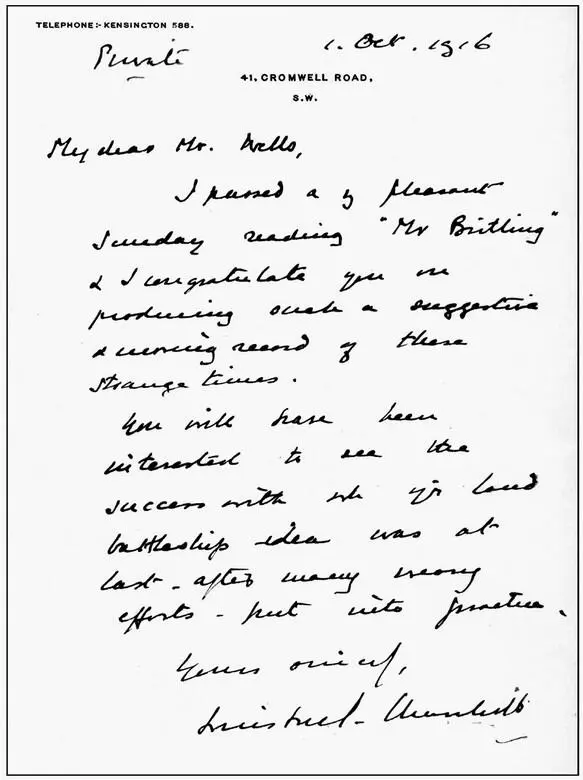 TELEPHONE:- KENSINGTON 588.
Private
1. Oct. 1916
41, CROMWELL ROAD,
S.W.
My dear Mr. Wells,
I passed a vy pleasant
Sunday reading "Mr Britling"
& I congratulate you on
producing such a suggestive
& moving record of these
strange times.
You will have been
interested to see the
success with wh yr land
battleship idea was at
last - after many weary
efforts - put into practice.
Yours sincely,
Winston S. Churchill